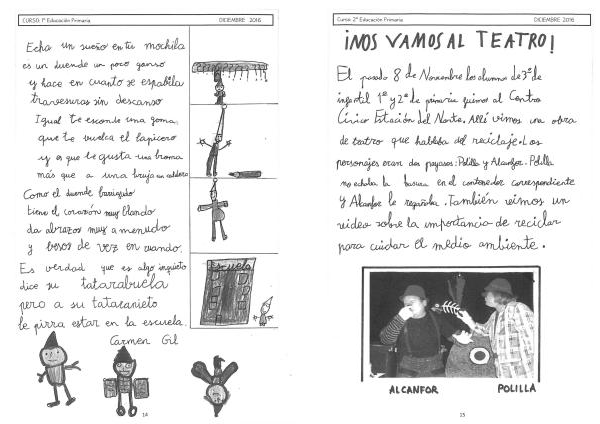 CURSO: 1º Educación Primaria
DICIEMBRE 2016
Echa un sueño en tu mochila
es un duende un poco ganso
y hace en cuanto se espabila
travesuras sin descanso
Igual te esconde una goma,
que te vuelca el lapicero
y es que le gusta una broma
más que a una bruja un caldero
Como el duende barrigudo
tiene el corazón muy blando
da abrazos muy a menudo
y besos de vez en cuando.
Es verdad que es algo inquieto
dice su tatarabuela
pero a su tataranieto
le pirra estar en la escuela.
Carmen Gil
Escuela
14
Curso: 2º Educación Primaria
DICIEMBRE 2016
¡NOS VAMOS AL TEATRO!
El pasado 8 de Noviembre los alumnos de 3º de
infantil 1º y 2º de primaria fuimos al Centro
Cívico Estación del Norte. Allí vimos una obra
de teatro que hablaba del reciclaje. Los
personajes eran dos payasos: Polilla y Alcanfor. Polilla
no echaba la basura en el contenedor correspondiente
y Alcanfor le regañaba. También vimos un
video sobre la importancia de reciclar
para cuidar el medio ambiente.
ALCANFOR
POLILLA
15